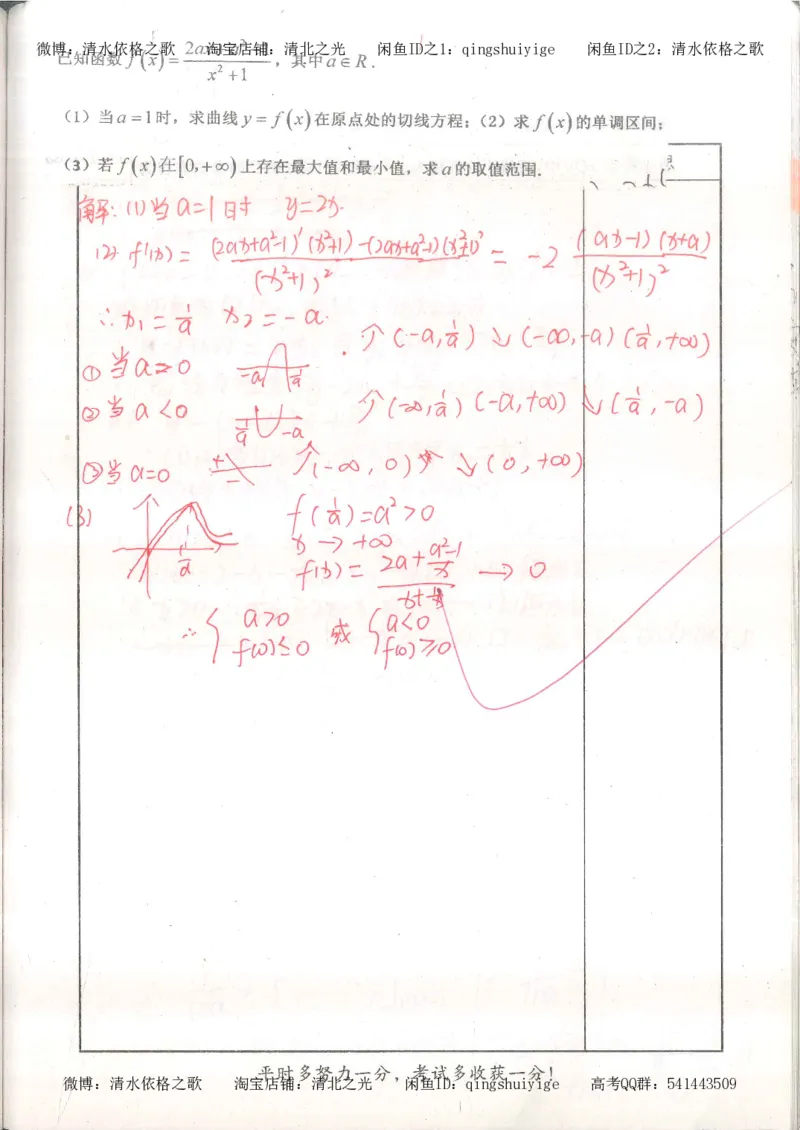 微博：清水依格之歌 淘宝店铺：清北之光 闲鱼ID之1：qingshuiyige 闲鱼ID之2：清水依格之歌
已知函数 f(x)= 2ax / x²+1 ，其中a∈R.
(1) 当a=1时，求曲线y=f(x)在原点处的切线方程；(2) 求f(x)的单调区间；
(3) 若f(x)在[0,+∞)上存在最大值和最小值，求a的取值范围.
解: (1) 当a=1时 y=2x.
(2) f'(x)= (2ax+a²-1)'(x²+1)-(2ax+a²-1)(x²+1)' / (x²+1)² = -2 (ax-1)(x+a) / (x²+1)²
∴ x₁=1/a x₂=-a.
① 当a≥0 -a 1/a ↑(-a,1/a) ↓(-∞,-a)(1/a,+∞)
② 当a<0 1/a -a ↑(-∞,1/a)(-a,+∞) ↓(1/a,-a)
③ 当a=0 + - ↑(-∞,0) ↓(0,+∞)
(3) 1/a f(1/a)=a²>0
x→+∞
f(x)= 2a+ a²-1/x / x+1/x →0
∴ { a>0 f(0)≤0 或 { a<0 f(0)≥0
平时多努力一分，考试多收获一分！
微博：清水依格之歌 淘宝店铺：清北之光 闲鱼ID：qingshuiyige 高考QQ群：541443509